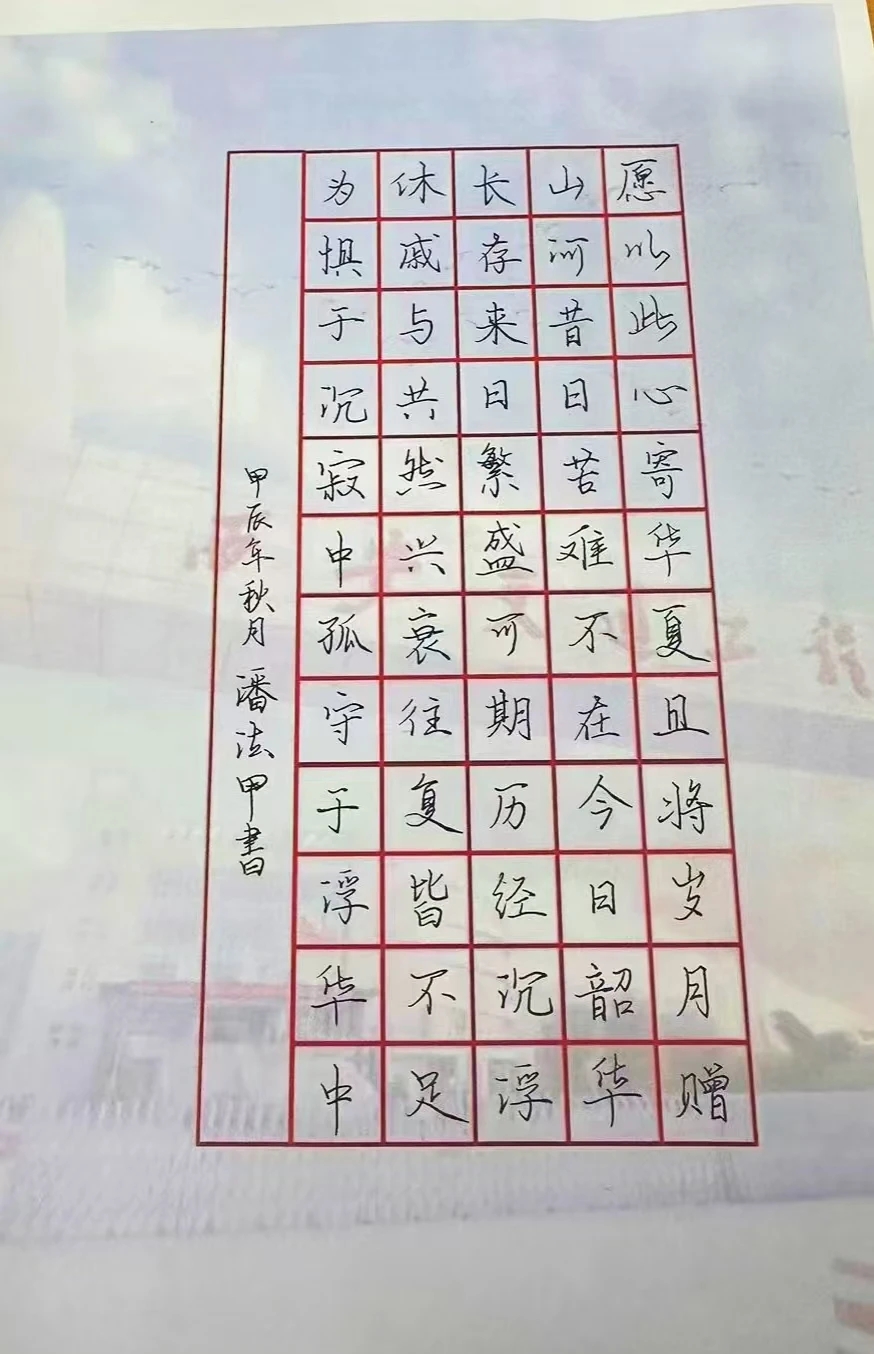 愿以此心寄华夏且将岁月赠
山河昔日苦难不在今日韶华
长存来日繁盛可期历经沉浮
休戚与共然兴衰往复皆不足
为惧于沉寂中孤守于浮华中
甲辰年秋月潘法甲书